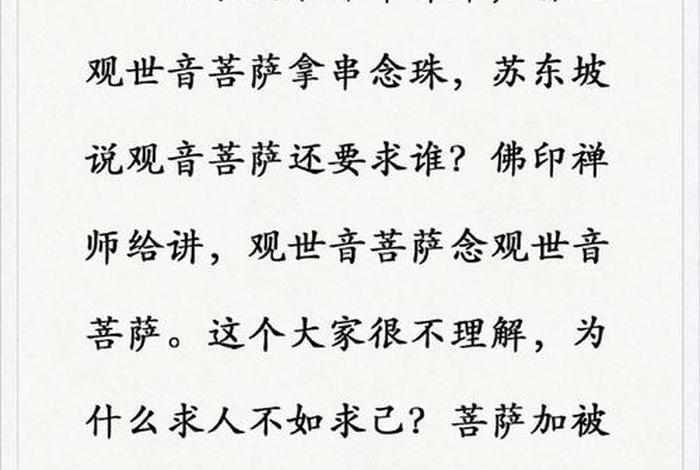 观世音菩萨拿串念珠，苏东坡
说观音菩萨还要求谁？佛印禅
师给讲，观世音菩萨念观世音
菩萨。这个大家很不理解，为
什么求人不如求己？菩萨加被